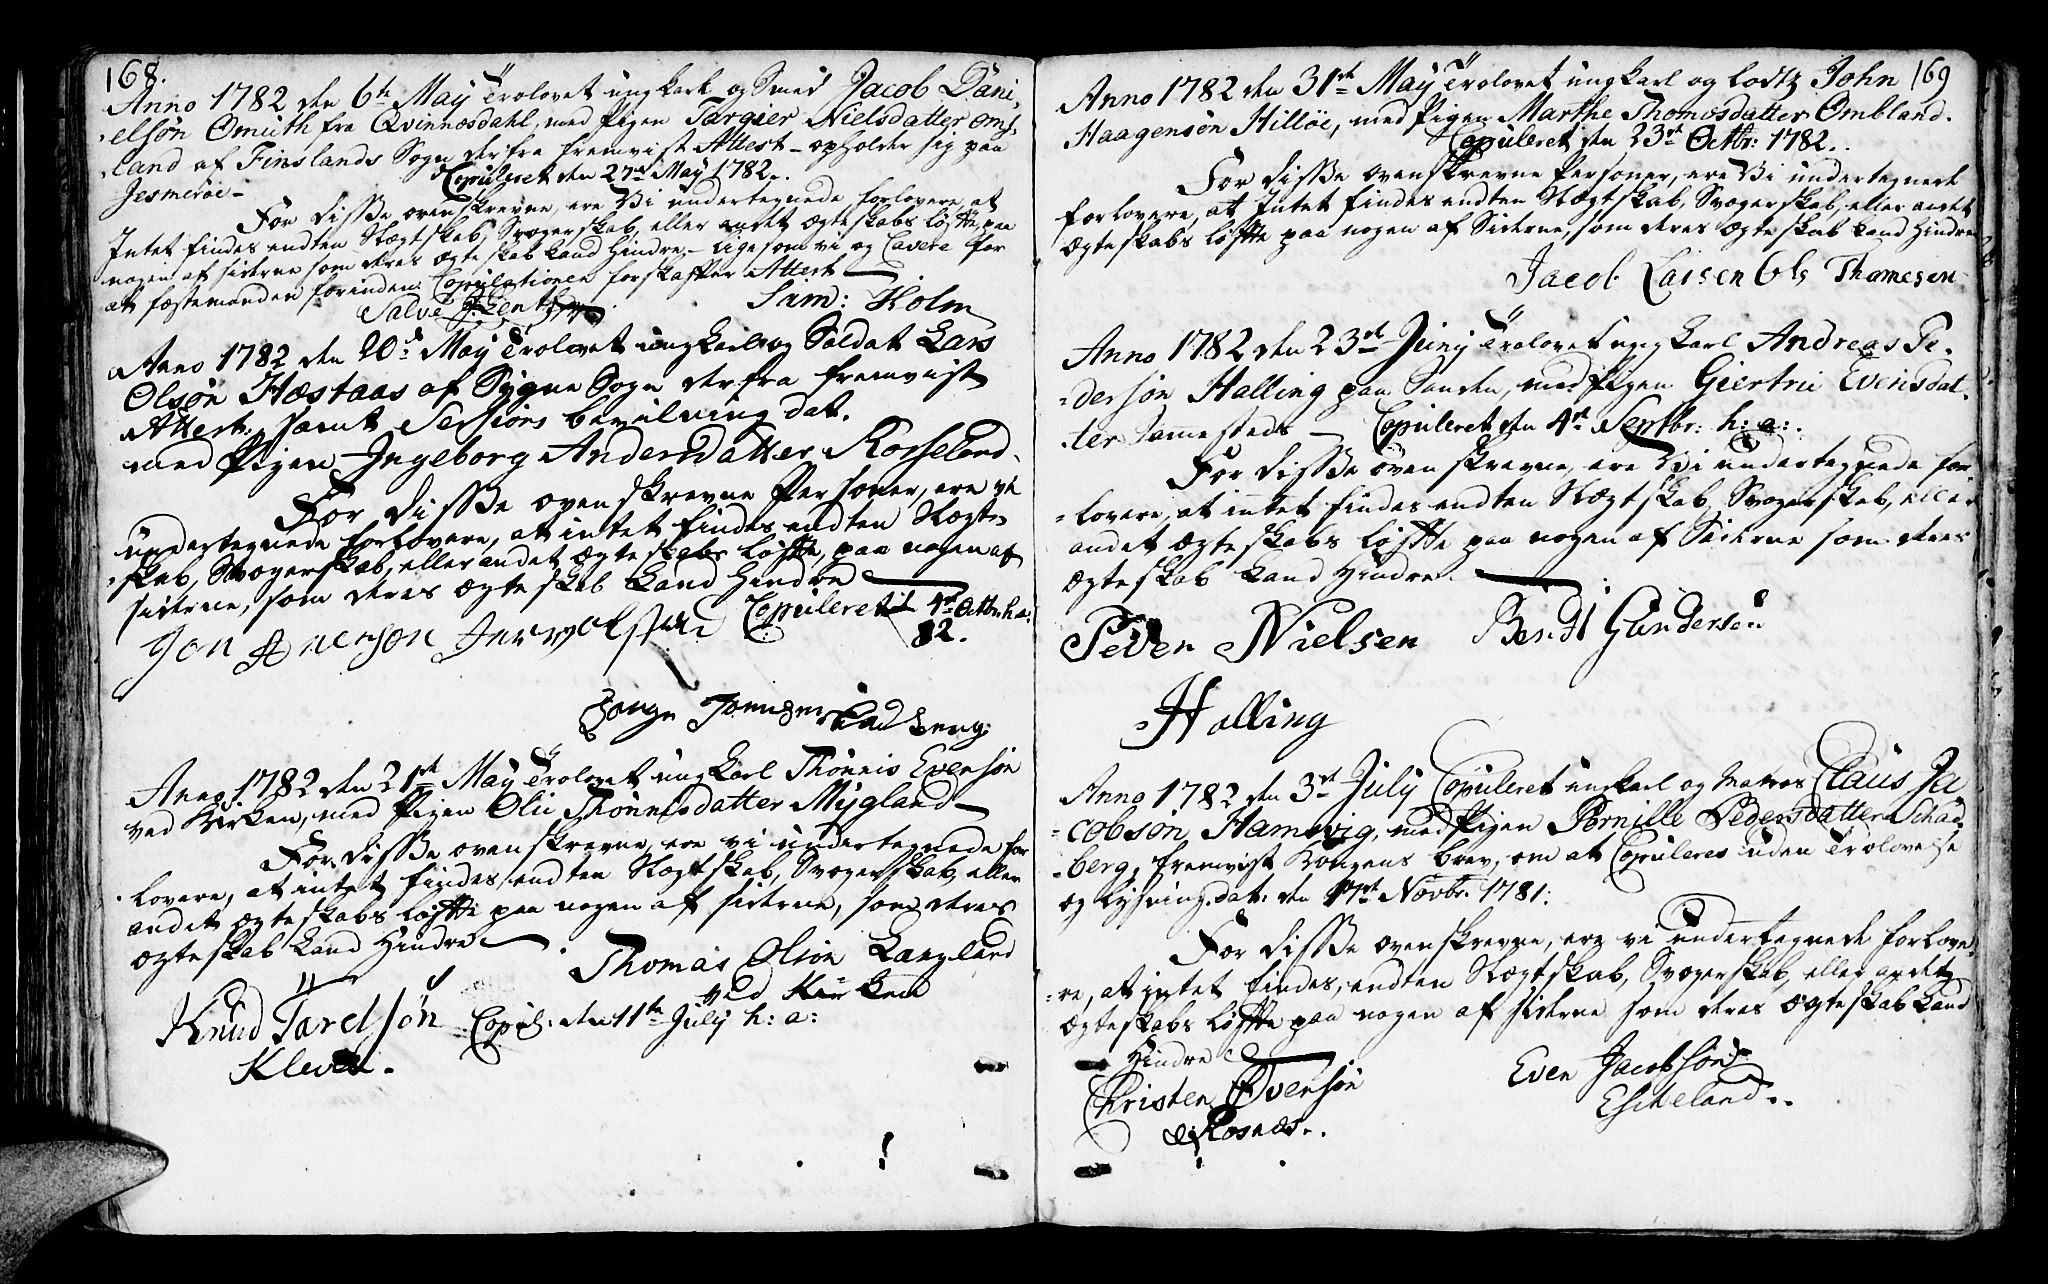 168.
Anno 1782 den 6th May Trolovet ungkarl og Smed Jacob Dani,
,elsøn Omuth fra Qvinnesdahl, med Pigen Targier Nielsdatter oms,
,land af Finslands Sogn derfra fremvist Attest – opholder sig paa
Jesmerøe – Copuleret den 27de May 1782.
For disse ovenskrevne, ere Vi undertegnede forlovere, at
Intet findes endten Slægtskab, Svogerskab, eller andet ægteskabs løfte, paa
nogen af siderne som deres ægteskab kand Hindre – ligesom vi og Cavere for
at fæstemanden forinden Copulationen forskaffer Attest
Salve Sam: Holm
Anno 1782 den 20de May Trolovet ungkarl og Soldat Lars
Olsøn Hæstaas af Sygne Sogn derfra fremvist
Attest, samt Sessions bevilning dat.
med Pigen Ingeborg Andersdatter Rosseland.
For disse ovenskrevne Personer, ere vi
undertegnede forlovere, at intet findes endten Slægt-
,skab, Svogerskab, eller andet ægteskabs løfte, paa nogen af
siderne, som deres ægteskab kand Hindre
Copuleret d 4de Octbr. h. a:
82.
Anno 1782 den 21st May Trolovet ungkarl Thønnis Evensøn
ved Kirken, med Pigen Oliu Thønnisdatter Mygland –
For disse ovenskrevne, ere vi undertegnede for
,lovere, at intet findes endten Slægtskab, Svogerskab, eller
andet ægteskabs løfte paa nogen af siderne, som deres
ægteskab kand Hindre
Thomas Olson Langland
ved Kirken
Knud Tarelsøn Copul: den 11te July h: a:
Kleven.
169
Anno 1782 den 31te May Trolovet ungkarl og lodtz John
Haagensøn Hilløe, med Pigen Marthe Thomosdatter Ombland.
Copuleret den 23de Octbr: 1782.
For disse ovenskrevne Personer, ere Vi undertegnede
forlovere, at Intet findes endten Slægtskab, Svogerskab, eller andet
ægteskabs løfte paa nogen af Siderne, som deres ægteskab kand Hindre
Jacob Larsen Ols Thomesen
Anno 1782 den 23de Junij Trolovet ungkarl Andreas Pe-
-dersøn Halling paa Sanden, med Pigen Giertrü Evensdat-
-ter sammesteds – Copuleret den 4de Septbr: h: a:.
For disse ovenskrevne, ere Vi undertegnede for
-lovere, at intet findes endten Slægtskab, Svogerskab, eller
andet ægteskabs løfte paa nogen af Siderne som deres
ægteskab kand Hindre.
Peder Nielsen Bendt Gundersen
Halling
Anno 1782 den 3de July Copuleret unkarl og Matros Claus Ja
-cobsøn Hamsvig, med Pigen Pernille Pedersdatter Schad-
-berg, fremvist Kongens brev, om at Copuleres uden Trolovelse
og Lysning. dat. den 17de Novbr. 1781.
For disse ovenskrevne, ere vi undertegnede forlove-
-re, at intet findes, endten Slægtskab, Svogerskab, eller andet
ægteskabs løfte paa nogen af siderne som deres ægteskab kand
Hindre
Christen Evensøn Even Jacobsøn
Rosnæs.. Escheland..